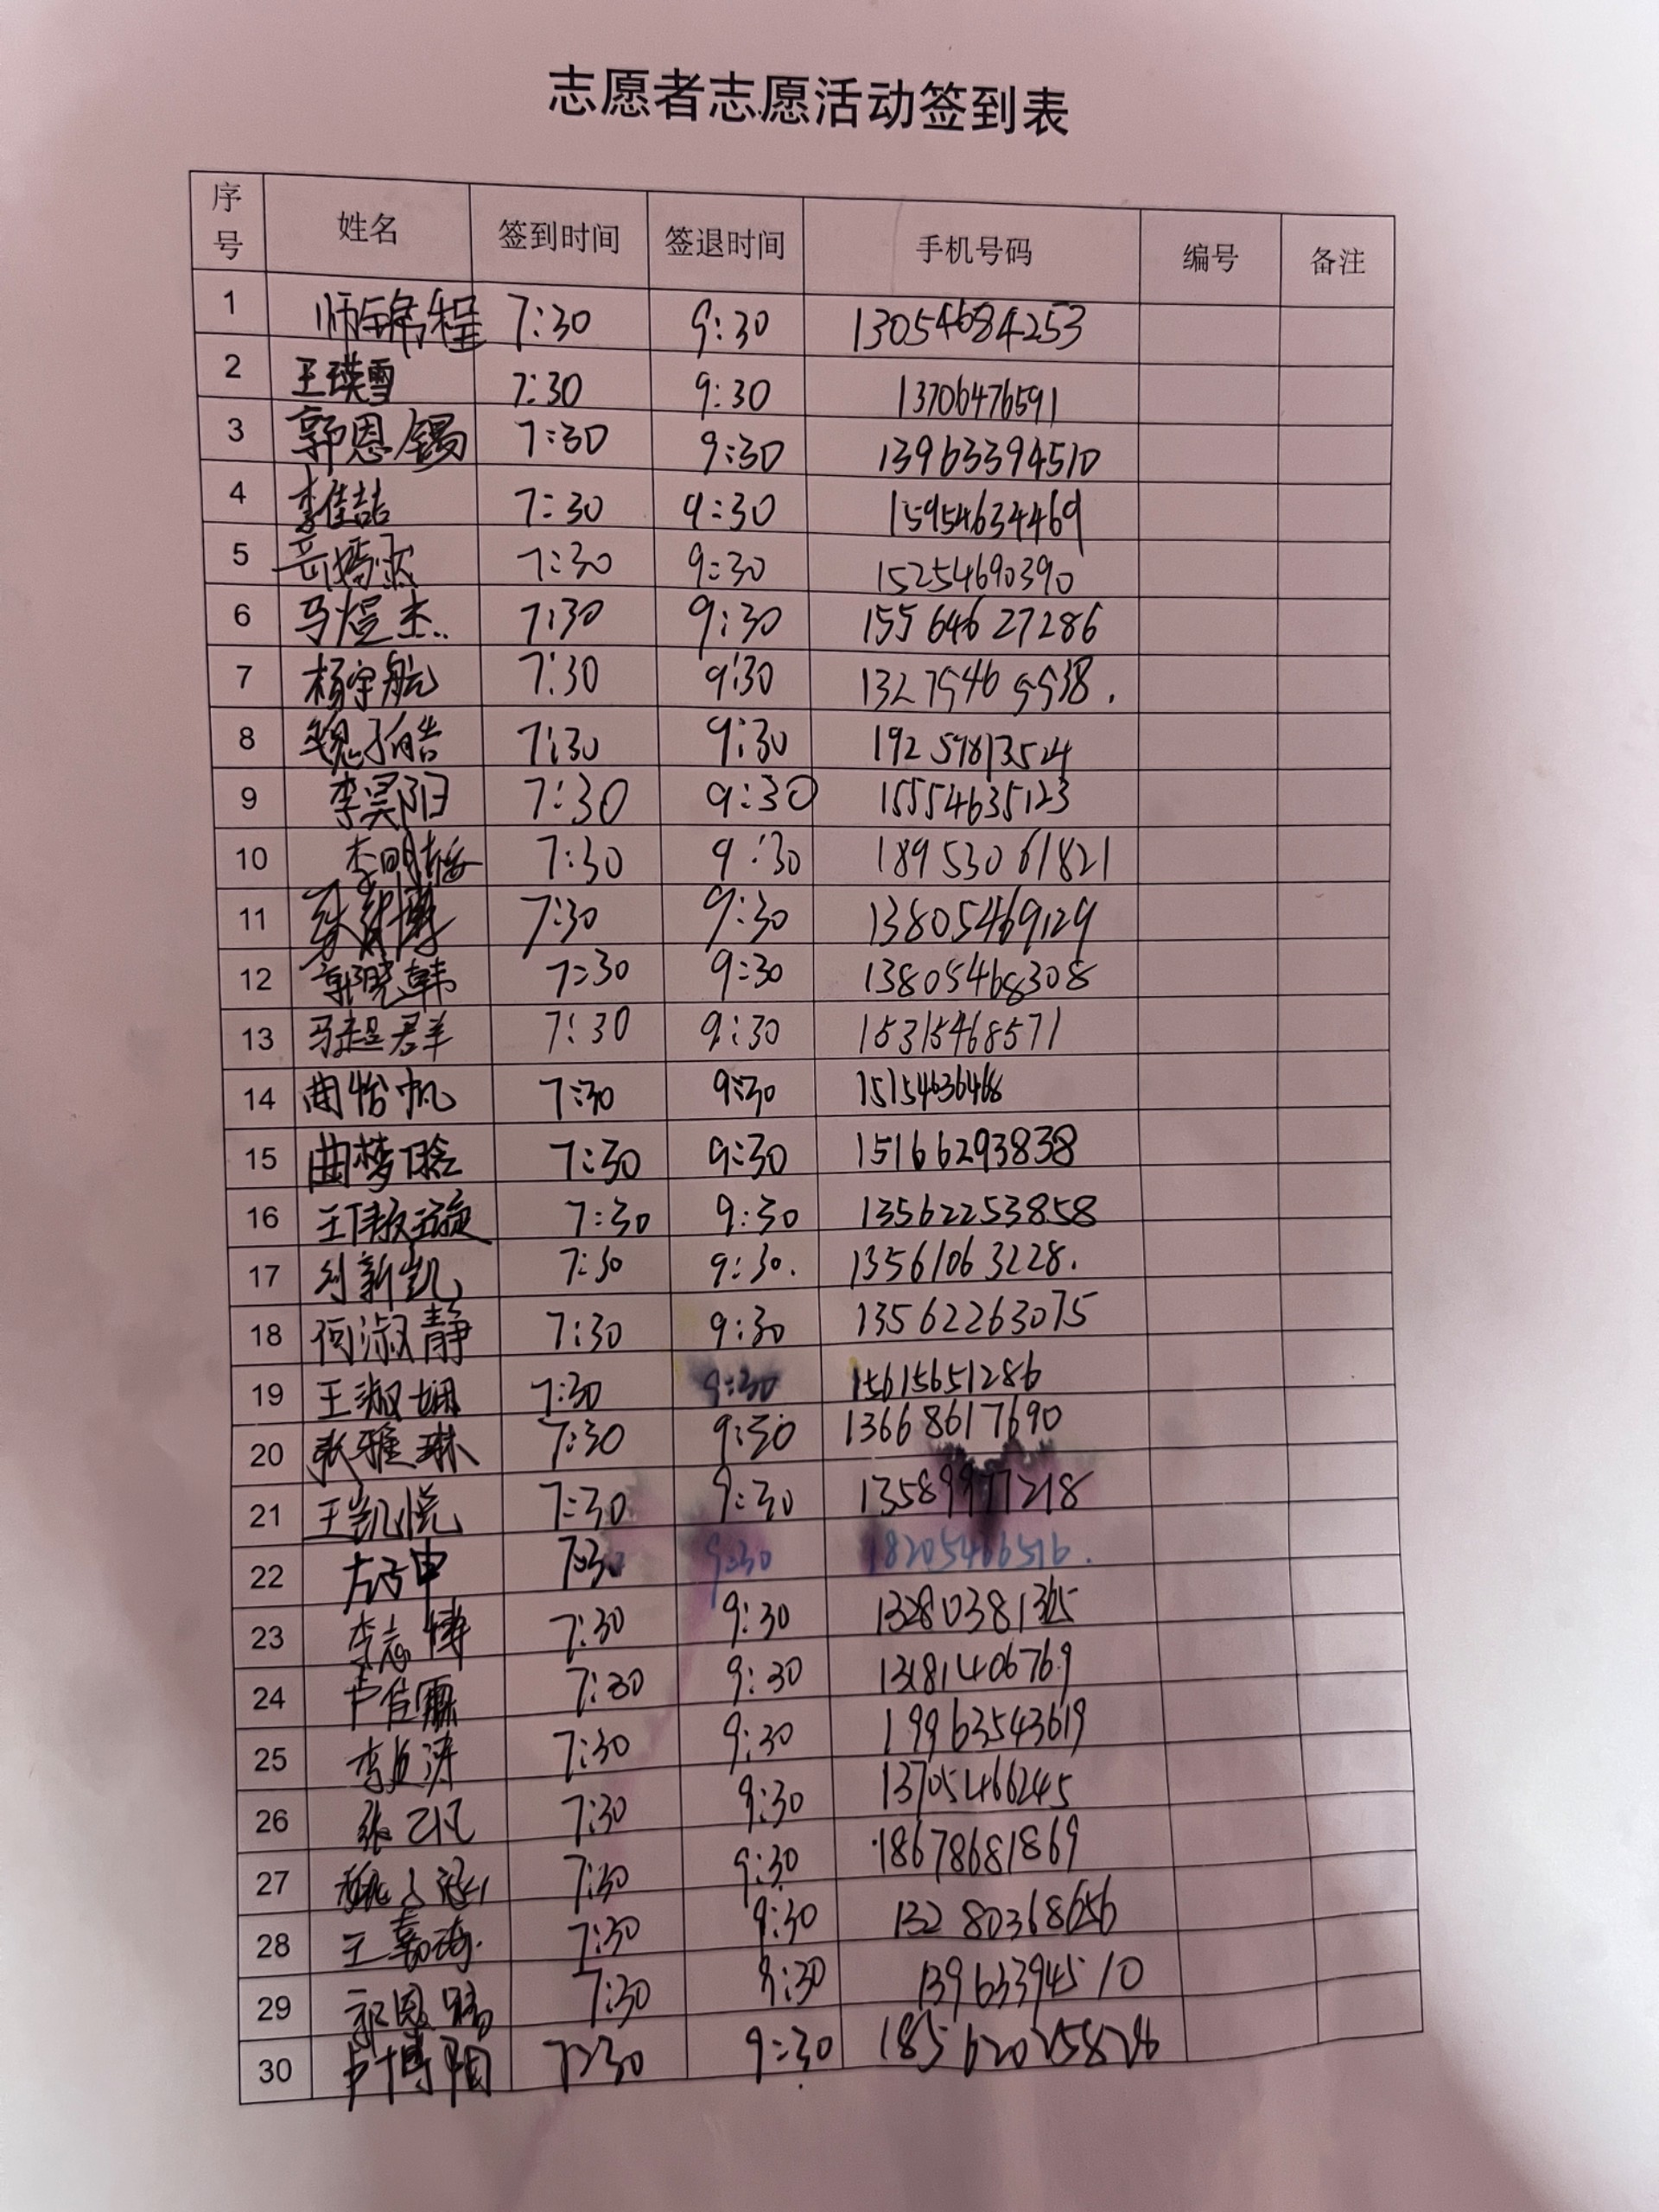 志愿者志愿活动签到表
序号 姓名 签到时间 签退时间 手机号码 编号 备注
1 师锦程 7:30 9:30 13054684253
2 王瑛雪 7:30 9:30 13706476591
3 郭恩锡 7:30 9:30 13963394510
4 李佳喆 7:30 9:30 15954634469
5 7:30 9:30 15254690390
6 马煜杰.. 7:30 9:30 15564627286
7 杨宇航 7:30 9:30
8 魏子皓 7:30 9:30 19259813524
9 李昊阳 7:30 9:30 15554635123
10 李明 7:30 9:30 18953061821
11 7:30 9:30 13805469129
12 郭晓韩 7:30 9:30 13805468308
13 马超群 7:30 9:30 15315468571
14 曲怡帆 7:30 9:30 15154636468
15 曲梦晗 7:30 9:30 15166293838
16 王 7:30 9:30 13562253858
17 刘新凯 7:30 9:30. 13561063228.
18 何淑静 7:30 9:30 13562263075
19 王淑娴 7:30 9:30 15615651286
20 张雅琳 7:30 9:30 13668617690
21 王凯悦 7:30 9:30 13589977218
22 7:30 9:30 18205466516.
23 李志博 7:30 9:30
24 卢佳霖 7:30 9:30 13181406769
25 李 涛 7:30 9:30 19963543619
26 张 7:30 9:30 13705466245
27 7:30 9:30 18678681869
28 王嘉琦. 7:30 9:30 13280368656
29 郭恩锡 7:30 9:30 13963394510
30 卢博阳 7:30 9:30